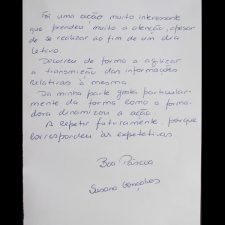 Foi uma acção muito interessante
que prendeu muito a atenção, apesar
de se realizar ao fim de um dia
letivo.
Decorreu de forma a agilizar
a transmissão das informações
relativas à mesma.
Da minha parte gostei particular-
mente da forma como a forma-
dora dinamizou a ação.
A repetir futuramente, porque
correspondeu às expetativas.
Boa Páscoa
Susana Gonçalves